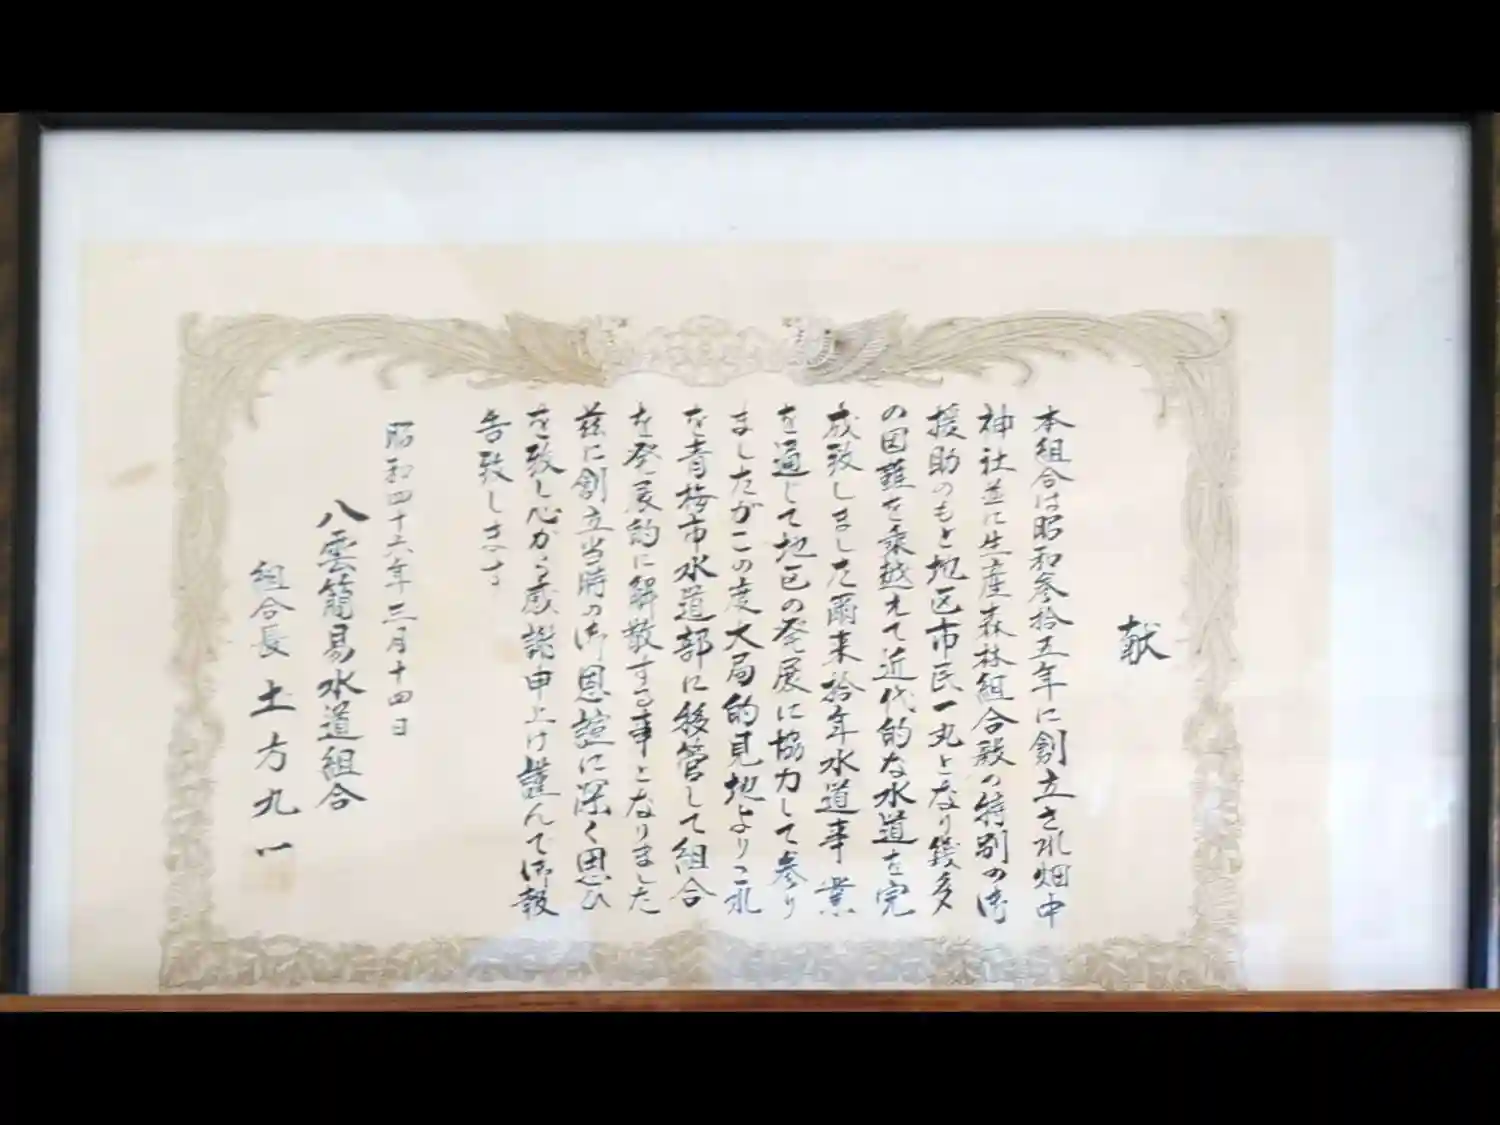 献
本組合は昭和参拾五年に創立され畑中
神社並に生産森林組合殿の特別の御
援助のもと地区市民一丸となり幾多
の困難を乗越えて近代的な水道を完
成致しました爾来拾年水道事業
を通じて地区の発展に協力して参り
ましたがこの度大局的見地よりこれ
を青梅市水道部に移管して組合
を発展的に解散する事となりました
茲に創立当時の御恩誼に深く思ひ
を致し心から感謝申上け謹んで御報
告致します
昭和四十六年三月十四日
八雲簡易水道組合
組合長 土方九一